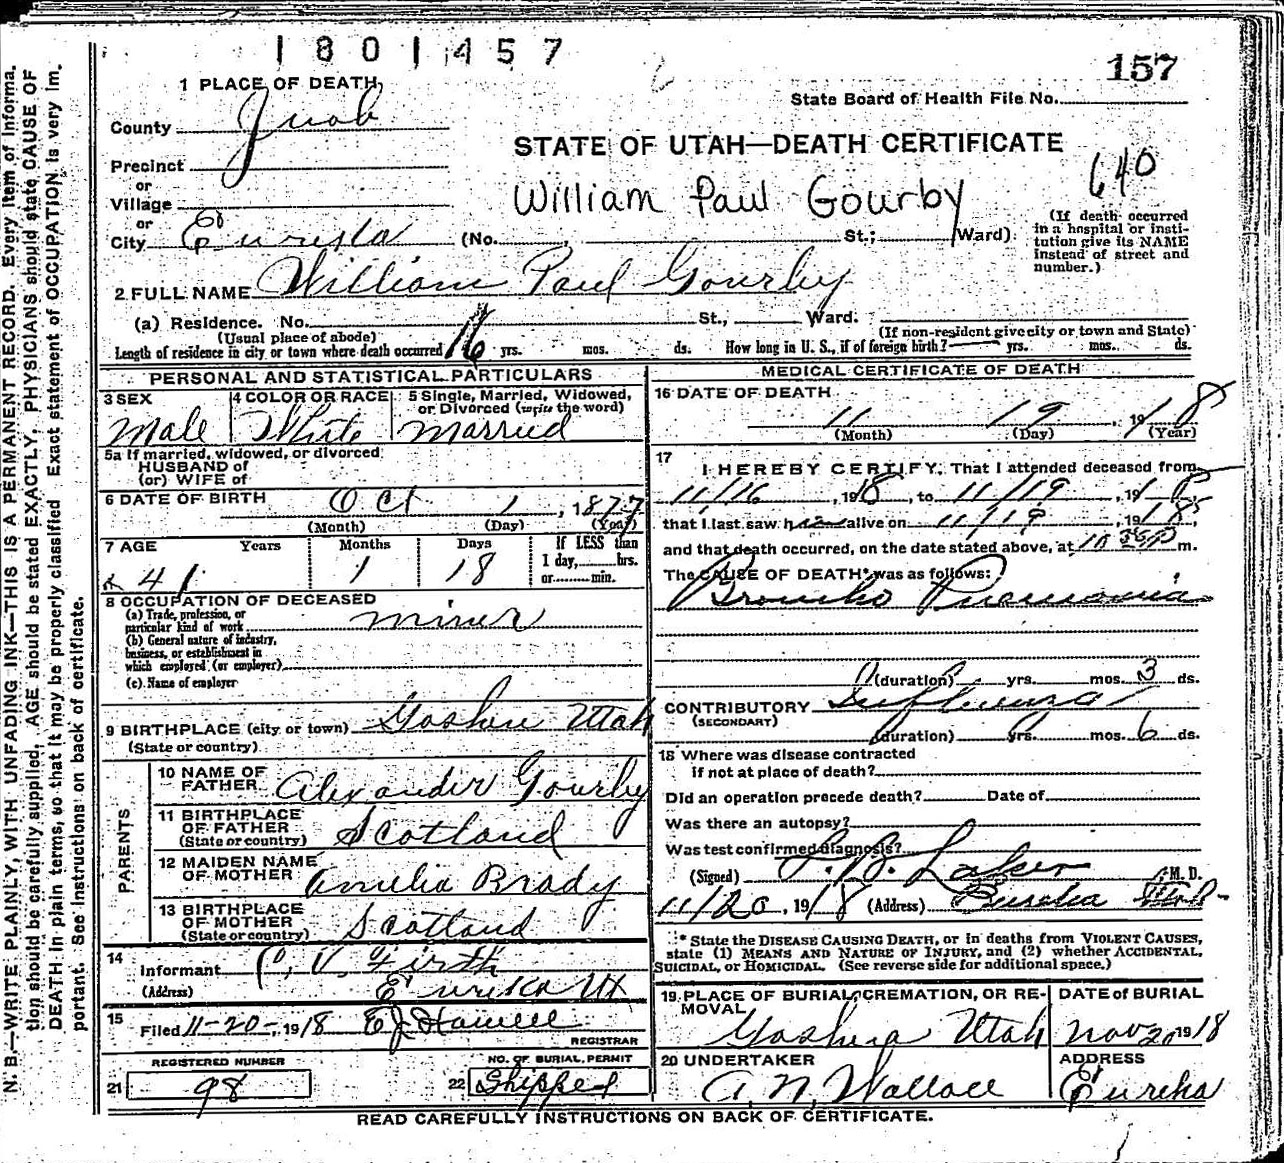 1801457
157
State Board of Health File No.
1 PLACE OF DEATH
County Juab
STATE OF UTAH—DEATH CERTIFICATE
Precinct
or
Village
or
City Eureka (No. St.; Ward)
William Paul Gourby
640
(If death occurred
in a hospital or insti-
tution give its NAME
instead of street and
number.)
2 FULL NAME William Paul Gourby
(a) Residence. No. St., Ward.
(Usual place of abode) (If non-resident give city or town and State)
Length of residence in city or town where death occurred 16 yrs. mos. ds. How long in U. S., if of foreign birth? yrs. mos. ds.
PERSONAL AND STATISTICAL PARTICULARS
3 SEX
Male
4 COLOR OR RACE
White
5 Single, Married, Widowed,
or Divorced (write the word)
Married
5a If married, widowed, or divorced
HUSBAND of
(or) WIFE of
6 DATE OF BIRTH Oct 1, 1877
(Month) (Day) (Year)
7 AGE Years Months Days If LESS than
1 day, hrs.
or min.
41 1 18
8 OCCUPATION OF DECEASED
(a) Trade, profession, or
particular kind of work miner
(b) General nature of industry,
business, or establishment in
which employed (or employer)
(c) Name of employer
9 BIRTHPLACE (city or town) Goshen Utah
(State or country)
PARENTS
10 NAME OF
FATHER Alexander Gourby
11 BIRTHPLACE
OF FATHER
(State or country) Scotland
12 MAIDEN NAME
OF MOTHER Amelia Brady
13 BIRTHPLACE
OF MOTHER
(State or country) Scotland
14
Informant C. V. Firth
(Address) Eureka Ut
15
Filed 11-20-, 1918 E J Howell
REGISTRAR
REGISTERED NUMBER
21 98
NO. OF BURIAL PERMIT
22 Shipped
MEDICAL CERTIFICATE OF DEATH
16 DATE OF DEATH
11 19, 1918
(Month) (Day) (Year)
17
I HEREBY CERTIFY, That I attended deceased from
11/16, 1918, to 11/19, 1918
that I last saw him alive on 11/19, 1918
and that death occurred, on the date stated above, at 10 30 P m.
The CAUSE OF DEATH* was as follows:
Broncho Pneumonia
(duration) yrs. mos. 3 ds.
CONTRIBUTORY Influenza
(SECONDARY)
(duration) yrs. mos. 6 ds.
18 Where was disease contracted
if not at place of death?
Did an operation precede death? Date of
Was there an autopsy?
Was test confirmed diagnosis?
(Signed) M. D.
11/20, 1918 (Address) Eureka Utah
* State the DISEASE CAUSING DEATH, or in deaths from VIOLENT CAUSES,
state (1) MEANS AND NATURE OF INJURY, and (2) whether ACCIDENTAL,
SUICIDAL, or HOMICIDAL. (See reverse side for additional space.)
19 PLACE OF BURIAL, CREMATION, OR RE-
MOVAL
Goshen Utah
DATE of BURIAL
Nov 20 1918
20 UNDERTAKER
A. N. Wallace
ADDRESS
Eureka
READ CAREFULLY INSTRUCTIONS ON BACK OF CERTIFICATE.
N. B.—WRITE PLAINLY, WITH UNFADING INK—THIS IS A PERMANENT RECORD. Every item of informa-
tion should be carefully supplied. AGE should be stated EXACTLY. PHYSICIANS should state CAUSE OF
DEATH in plain terms, so that it may be properly classified. Exact statement of OCCUPATION is very im-
portant. See instructions on back of certificate.